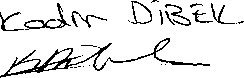 Kadir DİBEK